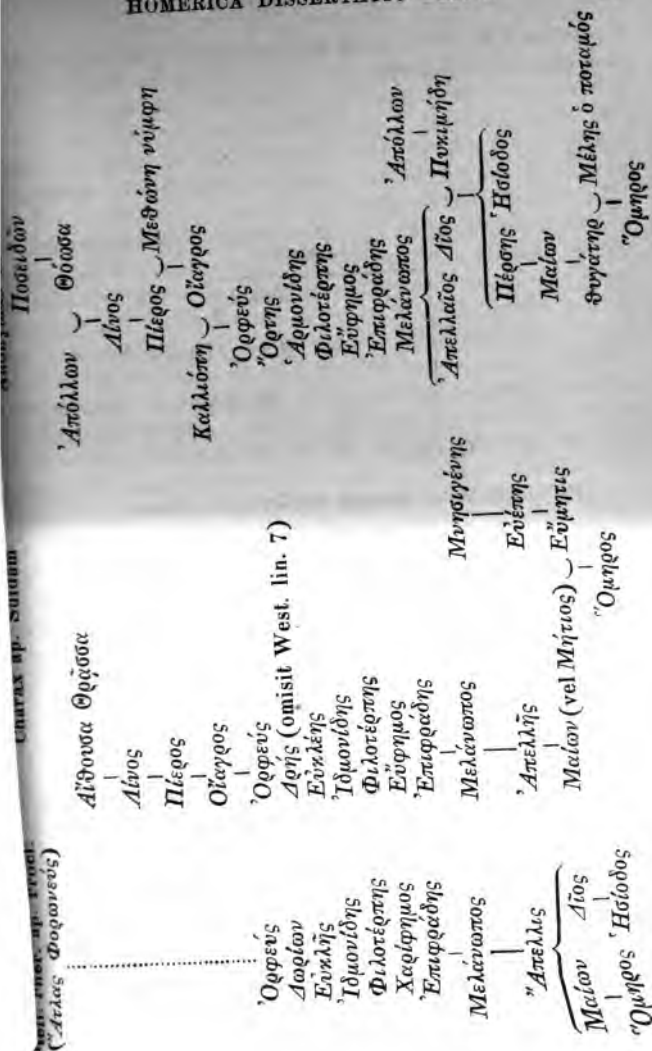 HOMERICA
ap. Procl.
(Ἄτλας Φορωνεύς)
Ὀρφεύς
Δωρίων
Εὐκλῆς
Ἰδμονίδης
Φιλοτέρπης
Χαρίφημος
Ἐπιφράδης
Μελάνωπος
Ἄπελλις
Μαίων Δῖος
Ὅμηρος Ἡσίοδος
Charax ap. Suidam
Αἴθουσα Θρᾷσσα
Λίνος
Πίερος
Οἴαγρος
Ὀρφεύς
Δρής (omisit West. lin. 7)
Εὐκλέης
Ἰδμονίδης
Φιλοτέρπης
Εὔφημος
Ἐπιφράδης
Μελάνωπος
Ἀπελλῆς
Μνησιγένης
Εὐέπης
Μαίων (vel Μήτιος) ‿ Εὔμητις
Ὅμηρος
Ποσειδῶν
Ἀπόλλων ‿ Θόωσα
Λίνος
Πίερος ‿ Μεθώνη νύμφη
Καλλιόπη ‿ Οἴαγρος
Ὀρφεύς
Ὄρτης
Ἁρμονίδης
Φιλοτέρπης
Εὔφημος
Ἐπιφράδης
Μελάνωπος
Ἀπόλλων
Ἀπελλαῖος Δῖος ‿ Πυκιμήδη
Πέρσης Ἡσίοδος
Μαίων
θυγάτηρ ‿ Μέλης ὁ ποταμός
Ὅμηρος